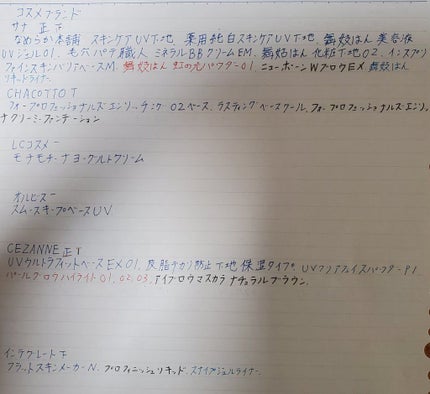 コスメブランド
サナ 正T
なめらか本舗 スキンケアUV下地 薬用純白スキンケアUV下地 舞妓はん 美容液
UVジェル01. 毛穴パテ職人 ミネラルBBクリームEM. 舞妓はん 化粧下地02.
ファインスキンバリアベースM. 舞妓はん 虹の光パウダー01. ニューボーンWブロウEX 舞妓はん
リキッドライナー
CHACOTTO T
フォープロフェッショナルズエンリッチング02ベース. ラスティングベースクール. フォープロフェッショナルズエンリッ
チクリーミーファンデーション
LCコスメ一
モチモチナヨーグルトクリーム
オルビス一
スムースキープベースUV
CEZANNE 正T
UVウルトラフィットベースEX01. 皮脂テカリ防止下地 保湿タイプ. UV P1
パールグロウハイライト01. 02. 03. アイブロウマスカラ ナチュラルブラウン.
インテグレート下
フラットスキンメーカーN. プロフィニッシュリキッド. スナイプジェルライナー.